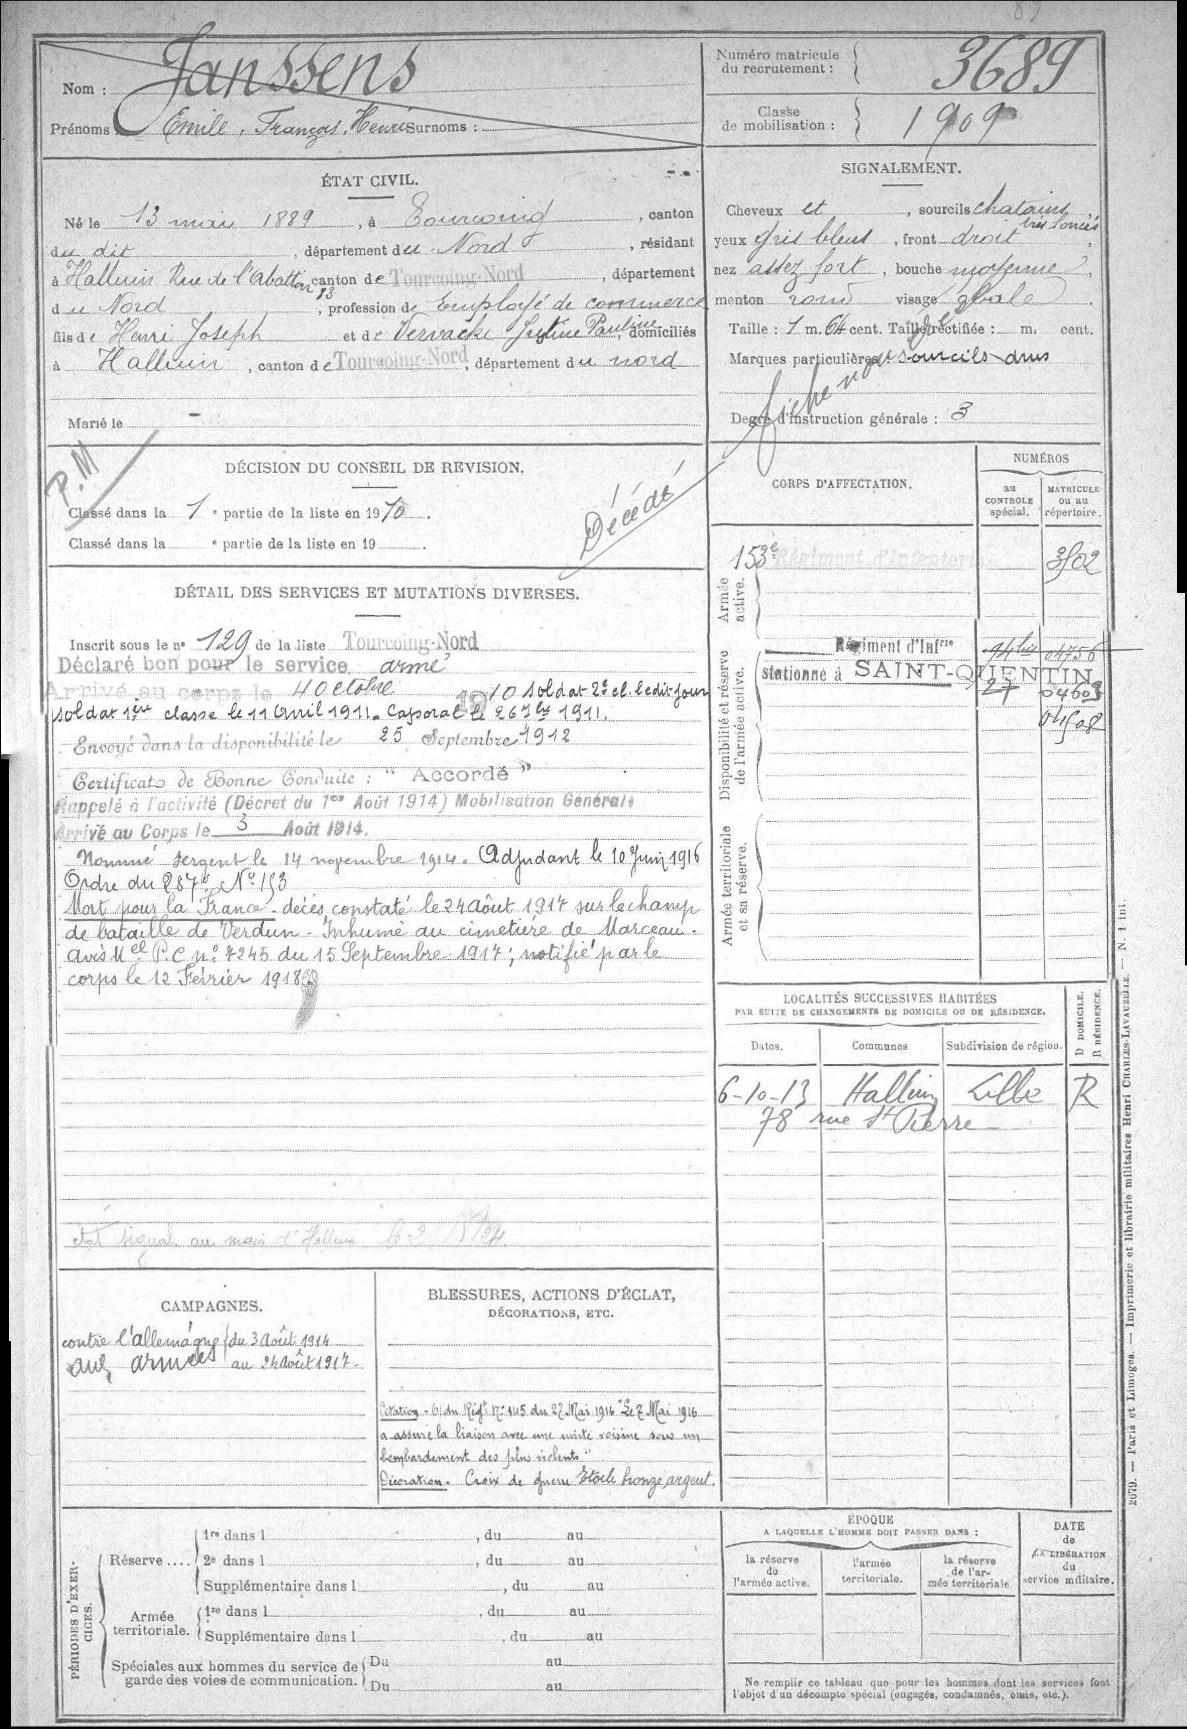 89
Nom : Janssens
Prénoms : Emile, François, Henri Surnoms :
Numéro matricule
du recrutement : 3689
Classe
de mobilisation : 1909
ÉTAT CIVIL.
Né le 13 mai 1889, à Tourcoing, canton
du dit, département du Nord, résidant
à Halluin Rue de l'Abattoir 83 canton de Tourcoing-Nord, département
du Nord, profession de Employé de commerce
fils de Henri Joseph et de Vervacke Justine Pauline, domiciliés
à Halluin, canton de Tourcoing-Nord, département du nord
Marié le -
SIGNALEMENT.
Cheveux et, sourcils chatains très foncés,
yeux gris bleus, front droit,
nez assez fort, bouche moyenne,
menton rond visage ovale.
Taille : 1 m. 64 cent. Taille rectifiée : m. cent.
Marques particulières : sourcils drus
Degré d'instruction générale : 3
P.M
DÉCISION DU CONSEIL DE REVISION.
Classé dans la 1e partie de la liste en 1910.
Classé dans la e partie de la liste en 19 .
Décédé
DÉTAIL DES SERVICES ET MUTATIONS DIVERSES.
Inscrit sous le n° 129 de la liste Tourcoing-Nord
Déclaré bon pour le service armé
Arrivé au corps le 4 Octobre 1910 soldat 2e cl. le dit jour
soldat 1ère classe le 11 Avril 1911. Caporal le 26 7bre 1911.
Envoyé dans la disponibilité le 25 Septembre 1912
Certificat de Bonne Conduite : "Accordé"
Rappelé à l'activité (Décret du 1er Août 1914) Mobilisation Générale
Arrivé au Corps le 3 Août 1914.
Nommé sergent le 14 novembre 1914. Adjudant le 10 Juin 1916
Ordre du 287e N° 153
Mort pour la France - décès constaté le 24 Août 1917 sur le champ
de bataille de Verdun - Inhumé au cimetière de Marceau.
avis Mel P.C n° 7245 du 15 Septembre 1917 ; notifié par le
corps le 12 Février 1918
CORPS D'AFFECTATION.
NUMÉROS
au
CONTROLE
spécial.
MATRICULE
ou au
répertoire.
Armée
active.
153e Régiment d'Infanterie. 3502
Disponibilité et réserve
de l'armée active.
Régiment d'Infrie 94 bis 04756
stationné à SAINT-QUENTIN 27 04603
04508
Armée territoriale
et sa réserve.
LOCALITÉS SUCCESSIVES HABITÉES
PAR SUITE DE CHANGEMENTS DE DOMICILE OU DE RÉSIDENCE.
D DOMICILE.
R RÉSIDENCE.
Dates. Communes Subdivision de région.
6-10-13 Halluin Lille R
78 rue St Pierre
CAMPAGNES.
contre l'allemagne du 3 Août 1914
aux armées au 24 Août 1917.
BLESSURES, ACTIONS D'ÉCLAT,
DÉCORATIONS, ETC.
Citation - O/ du Régt N° 145 du 27 Mai 1916 "Le 7 Mai 1916
a assuré la liaison avec une unité voisine sous un
bombardement des plus violents"
Décoration. Croix de guerre Etoile bronze argent.
PÉRIODES D'EXERCICES.
Réserve .... 1re dans l , du au
2e dans l , du au
Supplémentaire dans l , du au
Armée
territoriale. 1re dans l , du au
Supplémentaire dans l , du au
Spéciales aux hommes du service de
garde des voies de communication. Du au
Du au
ÉPOQUE
A LAQUELLE L'HOMME DOIT PASSER DANS :
la réserve
de
l'armée active.
l'armée
territoriale.
la réserve
de l'ar-
mée territoriale.
DATE
de
LA LIBÉRATION
du
service militaire.
Ne remplir ce tableau que pour les hommes dont les services font
l'objet d'un décompte spécial (engagés, condamnés, omis, etc.).
2679. — Paris et Limoges. — Imprimerie et librairie militaires Henri CHARLES-LAVAUZELLE. — N. 1 int.